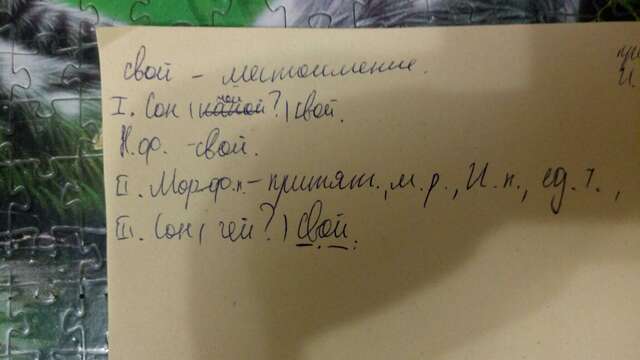 свой – местоимение.
I. Сон (какой? чей?) свой.
Н.ф. – свой.
II. Морф.п. – притяж., м.р., И.п., ед.ч.,
III. Сон (чей?) свой.
И.